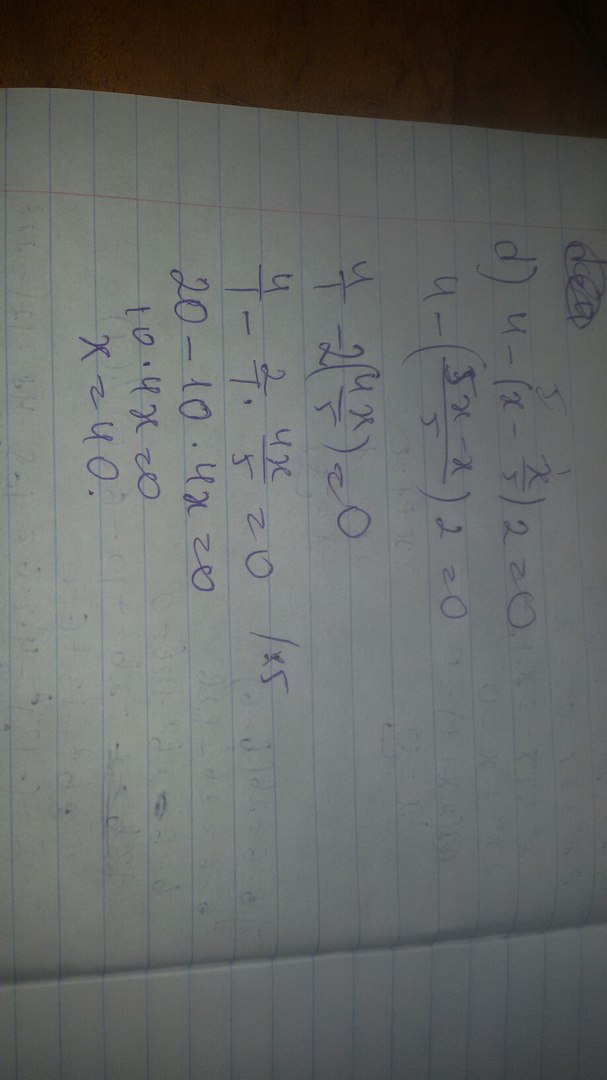 d) 4 - (x - x/5) 2 = 0
4 - (5x - x / 5) 2 = 0
4/1 - 2(4x/5) = 0
4/1 - 2/1 · 4x/5 = 0 /·5
20 - 10 · 4x = 0
10 · 4x = 0
x = 40.